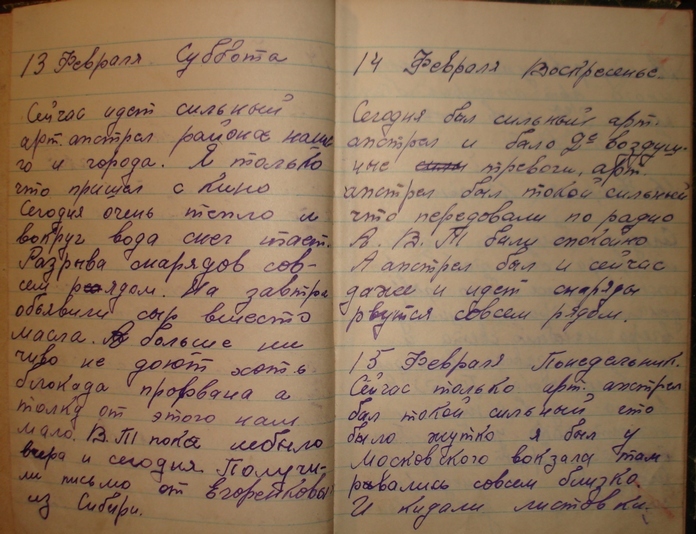 13 Февраля Суббота
Сейчас идет сильный
арт. апстрел района наше
го и города. Я только
что пришел с кино
Сегодня очень тепло и
вобруг вода снег таэт.
Разрыва снарядов сов-
сем рядом. На завтра
обявили сыр вместо
масла. А больше ни
чиво не доют хоть
блокада прорвана а
толку от этого нам
мало. В. Т пока небыло
вчера и сегодня. Получи-
ли письмо от Егоренковы
из Сибири.
14 Февраля Воскресенье
Сегодня был сильный арт.
апстрел и было 2е воздуш-
ные тревоги, арт.
апстрел был токой сильный
что передовали по радио
А. В. Т были спокойно
А апстрел был и сейчас
даже и идет снаряды
рвутся совсем рядом.
15 Февраля Понедельник.
Сейчас только арт. апстрел
был токой сильный сто
было жутко я был у
Московского вокзала там
рывались совсем близко
И кидали листовки.